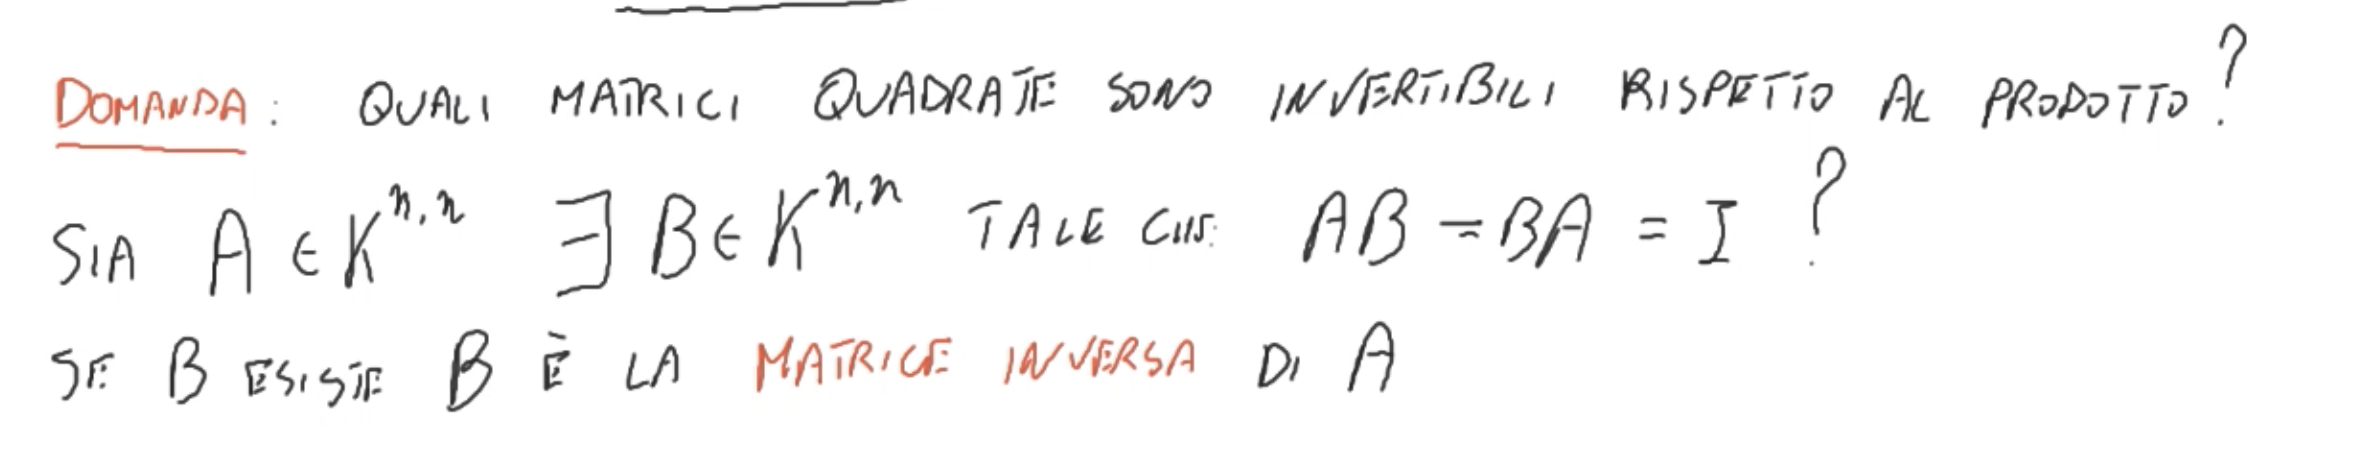 DOMANDA: QUALI MATRICI QUADRATE SONO INVERTIBILI RISPETTO AL PRODOTTO?
SIA A ∈ K^{n,n} ∃ B ∈ K^{n,n} TALE CHE AB = BA = I ?
SE B ESISTE B È LA MATRICE INVERSA DI A